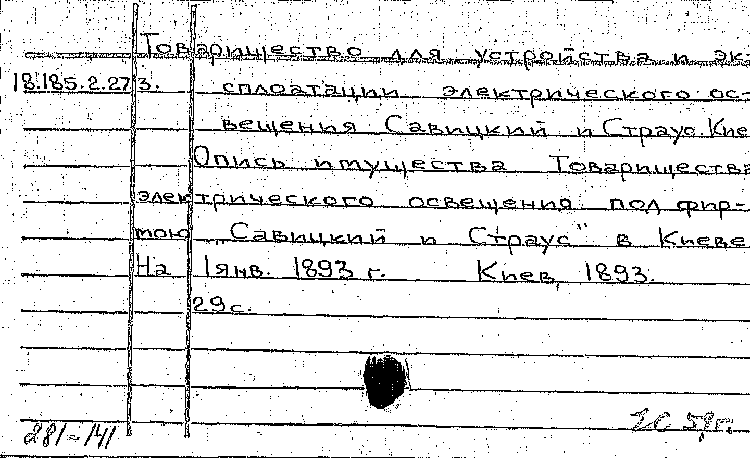 Товарищество для устройства и эк-
18.185.2.273. сплоатации электрического ос-
вещения Савицкий и Страус. Кие
Опись имущества Товарищества
электрического освещения под фир-
мою „Савицкий и Страус" в Киеве
На 1 янв. 1893 г. Киев, 1893.
29 с.
281-141